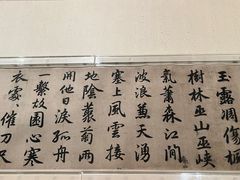 玉露凋傷楓
樹林巫山巫峽
氣蕭森江間
波浪兼天湧
塞上風雲接
地陰叢菊兩
開他日淚孤舟
一繫故園心寒
衣處〻催刀尺